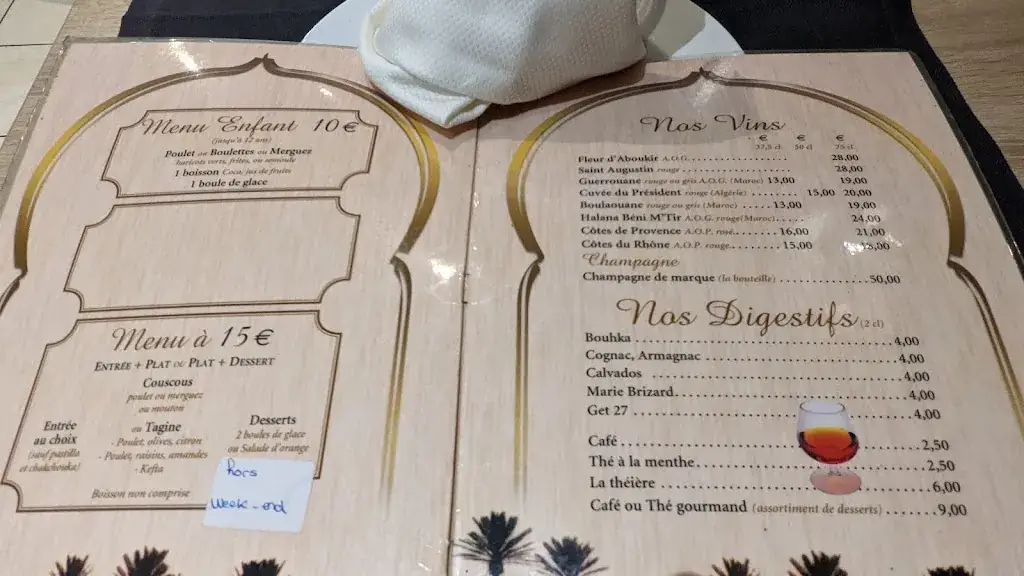 Menu Enfant 10 €
(jusqu'à 12 ans)
Poulet ou Boulettes ou Merguez
haricots verts, frites, ou semoule
1 boisson Coca, jus de fruits
1 boule de glace
Menu à 15 €
Entrée + Plat ou Plat + Dessert
Couscous
poulet ou merguez
ou mouton
Entrée
au choix
(sauf pastilla
et chakchouka)
ou Tagine
- Poulet, olives, citron
- Poulet, raisins, amandes
- Kefta
Desserts
2 boules de glace
ou Salade d'orange
Boisson non comprise
hors
week-end
Nos Vins
€ € €
37,5 cl 50 cl 75 cl
Fleur d'Aboukir A.O.G. 28,00
Saint Augustin rouge 28,00
Guerrouane rouge ou gris A.O.G. (Maroc) 13,00 19,00
Cuvée du Président rouge (Algérie) 15,00 20,00
Boulaouane rouge ou gris (Maroc) 13,00 19,00
Halana Béni M'Tir A.O.G. rouge(Maroc) 24,00
Côtes de Provence A.O.P. rosé 16,00 21,00
Côtes du Rhône A.O.P. rouge 15,00 18,00
Champagne
Champagne de marque (la bouteille) 50,00
Nos Digestifs (2 cl)
Bouhka 4,00
Cognac, Armagnac 4,00
Calvados 4,00
Marie Brizard 4,00
Get 27 4,00
Café 2,50
Thé à la menthe 2,50
La théière 6,00
Café ou Thé gourmand (assortiment de desserts) 9,00